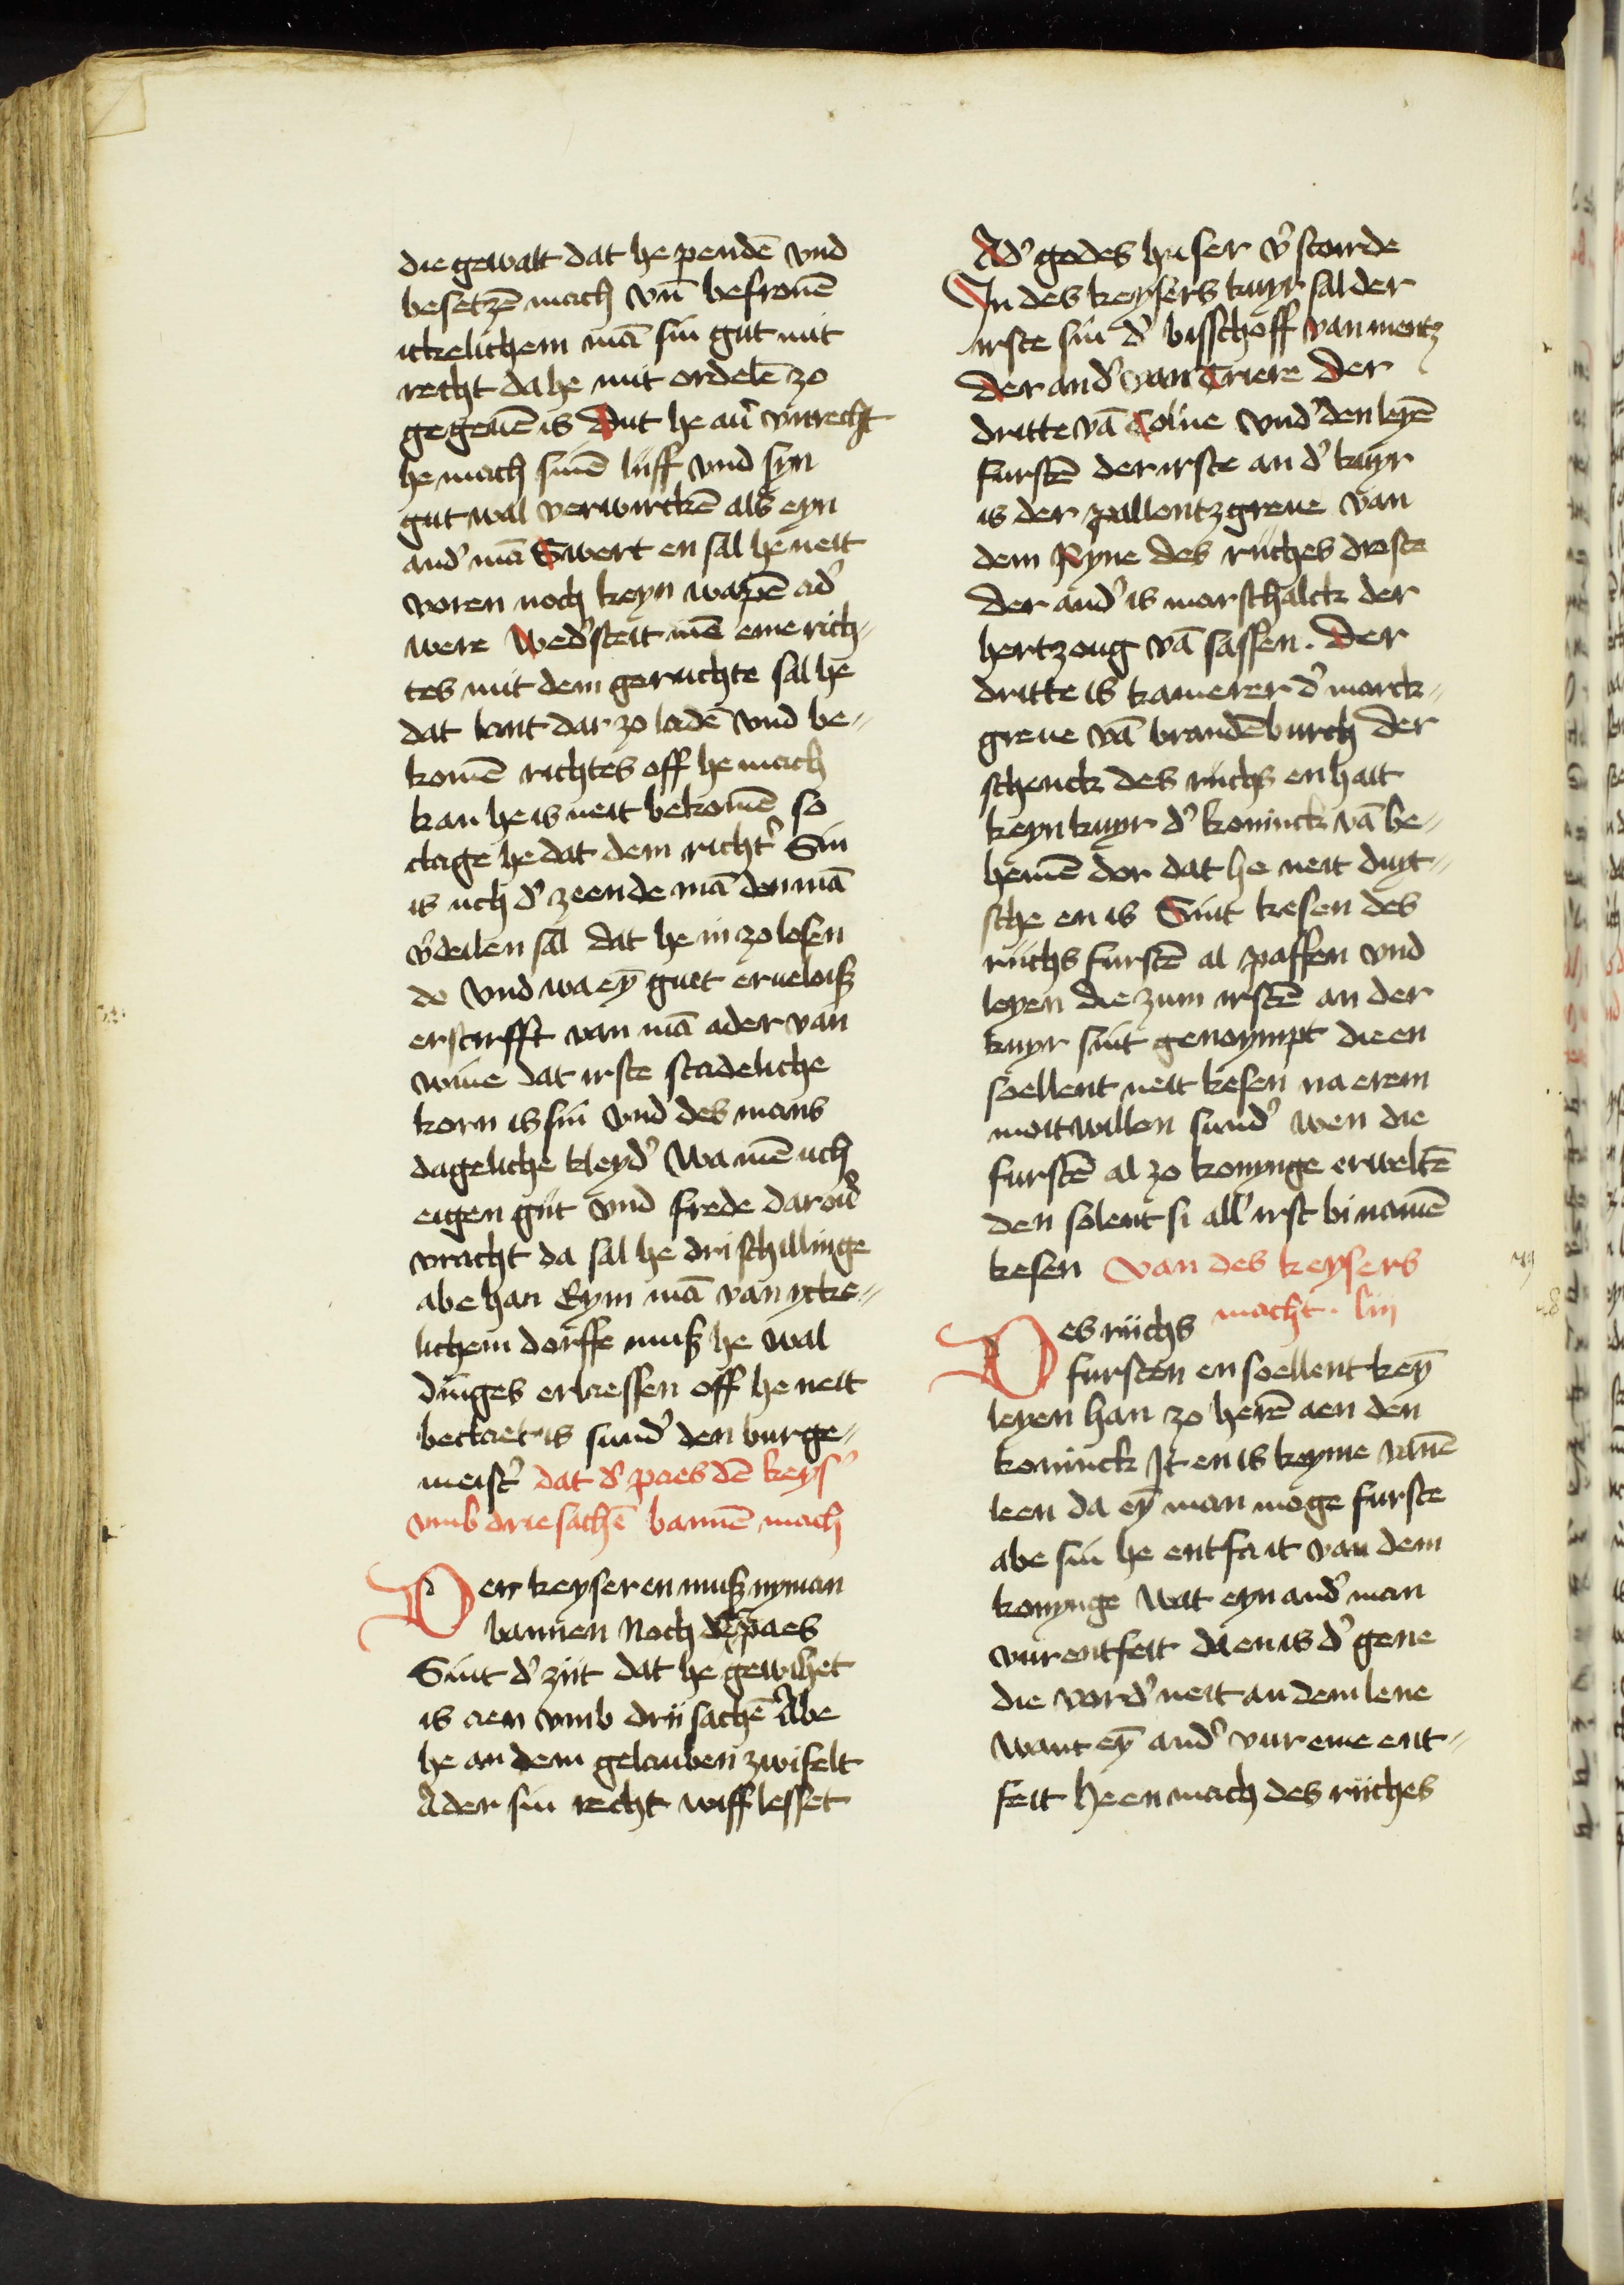 die gewalt dat he pendē vnd
besetzē mach vn̄ befronē
itzelichem mā sin gut mit
recht da he mit ordelē zo
gegeuē is Dut he auͬ vnrecht
he mach sinē lijff vnd syn
gut wal verwirckē als eyn
andͬ mā Swert en sal he neit
voren noch keyn wapē adͬ
were Wedͬsteit mē eme rich⸗
tes mit dem geruchte sal he
dat lant dar zo ladē vnd be⸗
komē richtes off he mach
kan he is neit bekomē so
clage he dat dem richtͬ Sin
is uch dͬ zeende mā den mā
vͬdeilen sal dat he in zo losen
do vnd wa eȳ guet erueloiß
erstirfft van mā ader van
wiue dat irste stadeliche
korn is sin vnd des mans
dageliche kleydͬ Wa mē uch
eigen gut vnd frede darouͬ
vracht da sal he dri schillinge
abe han Eym mā van ytze⸗
lichem dorffe muß he wal
dinges erlaessen off he neit
beclaet is sundͬ den burge⸗
meistͬ dat dͬ paes dē keysͬ
vmb drie sachē bannē mach
Der keyser en muß nyman
bannen Noch der paes
Sint dͬ zijt dat he gewihet
is aen vmb drij sachē Abe
he an dem gelauben zwifelt
Ader sin recht wiff lesset
Adͬ godes huser vͬstoirde
In des keysers kuyr sal der
irste sin dͬ bisschoff van mentz
der andͬ van Triere Der
dritte vā Colne vnd den leyē
furstē der irste an dͬ kuyr
is der pallentzgreue van
dem Ryne des rijches droste
der andͬ is marschalck der
hertzoug vā sassen. Der
dritte is kamerer dͬ marck⸗
greue vā brandēburch der
schenck des rijchs en hait
keyn kuyr dͬ koninck vā be⸗
hemē dor dat he neit duyt⸗
sche en is Sint kesen des
rijchs furstē al paffen vnd
leyen die zum irstē an der
kuyr sint genoympt die en
soellent neit kesen na erem
moitwillen sundͬ wen die
furstē al zo konynge erweltē
den solent si allͬ irst bi namē
kesen Van des keysers
macht. liij
Des rijchs
fursten en soellent keȳ
leyen han zo herē aen den
koninck It en is keyme vanē
leen da eȳ man moge furste
abe sin he entfait van dem
konynge Wat eyn andͬ man
vur entfeit da en is dͬ gene
die vordͬ neit an dem lene
want eȳ andͬ vur eme ent⸗
feit He en mach des rijches